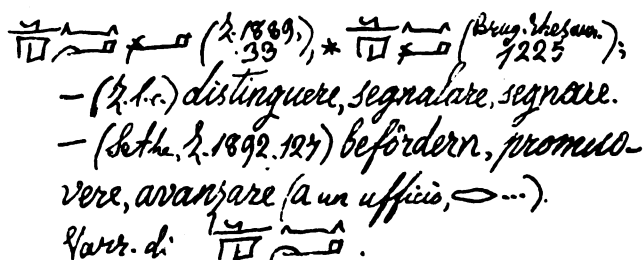 (Z. 1889, 33), * (Brug. Thesaur. 1225);
— (Z. l. c.) distinguere, segnalare, segnare.
— (Sethe, Z. 1892. 127) befördern, promuo-
vere, avanzare (a un ufficio, 𓂋 ...).
Varr. di .